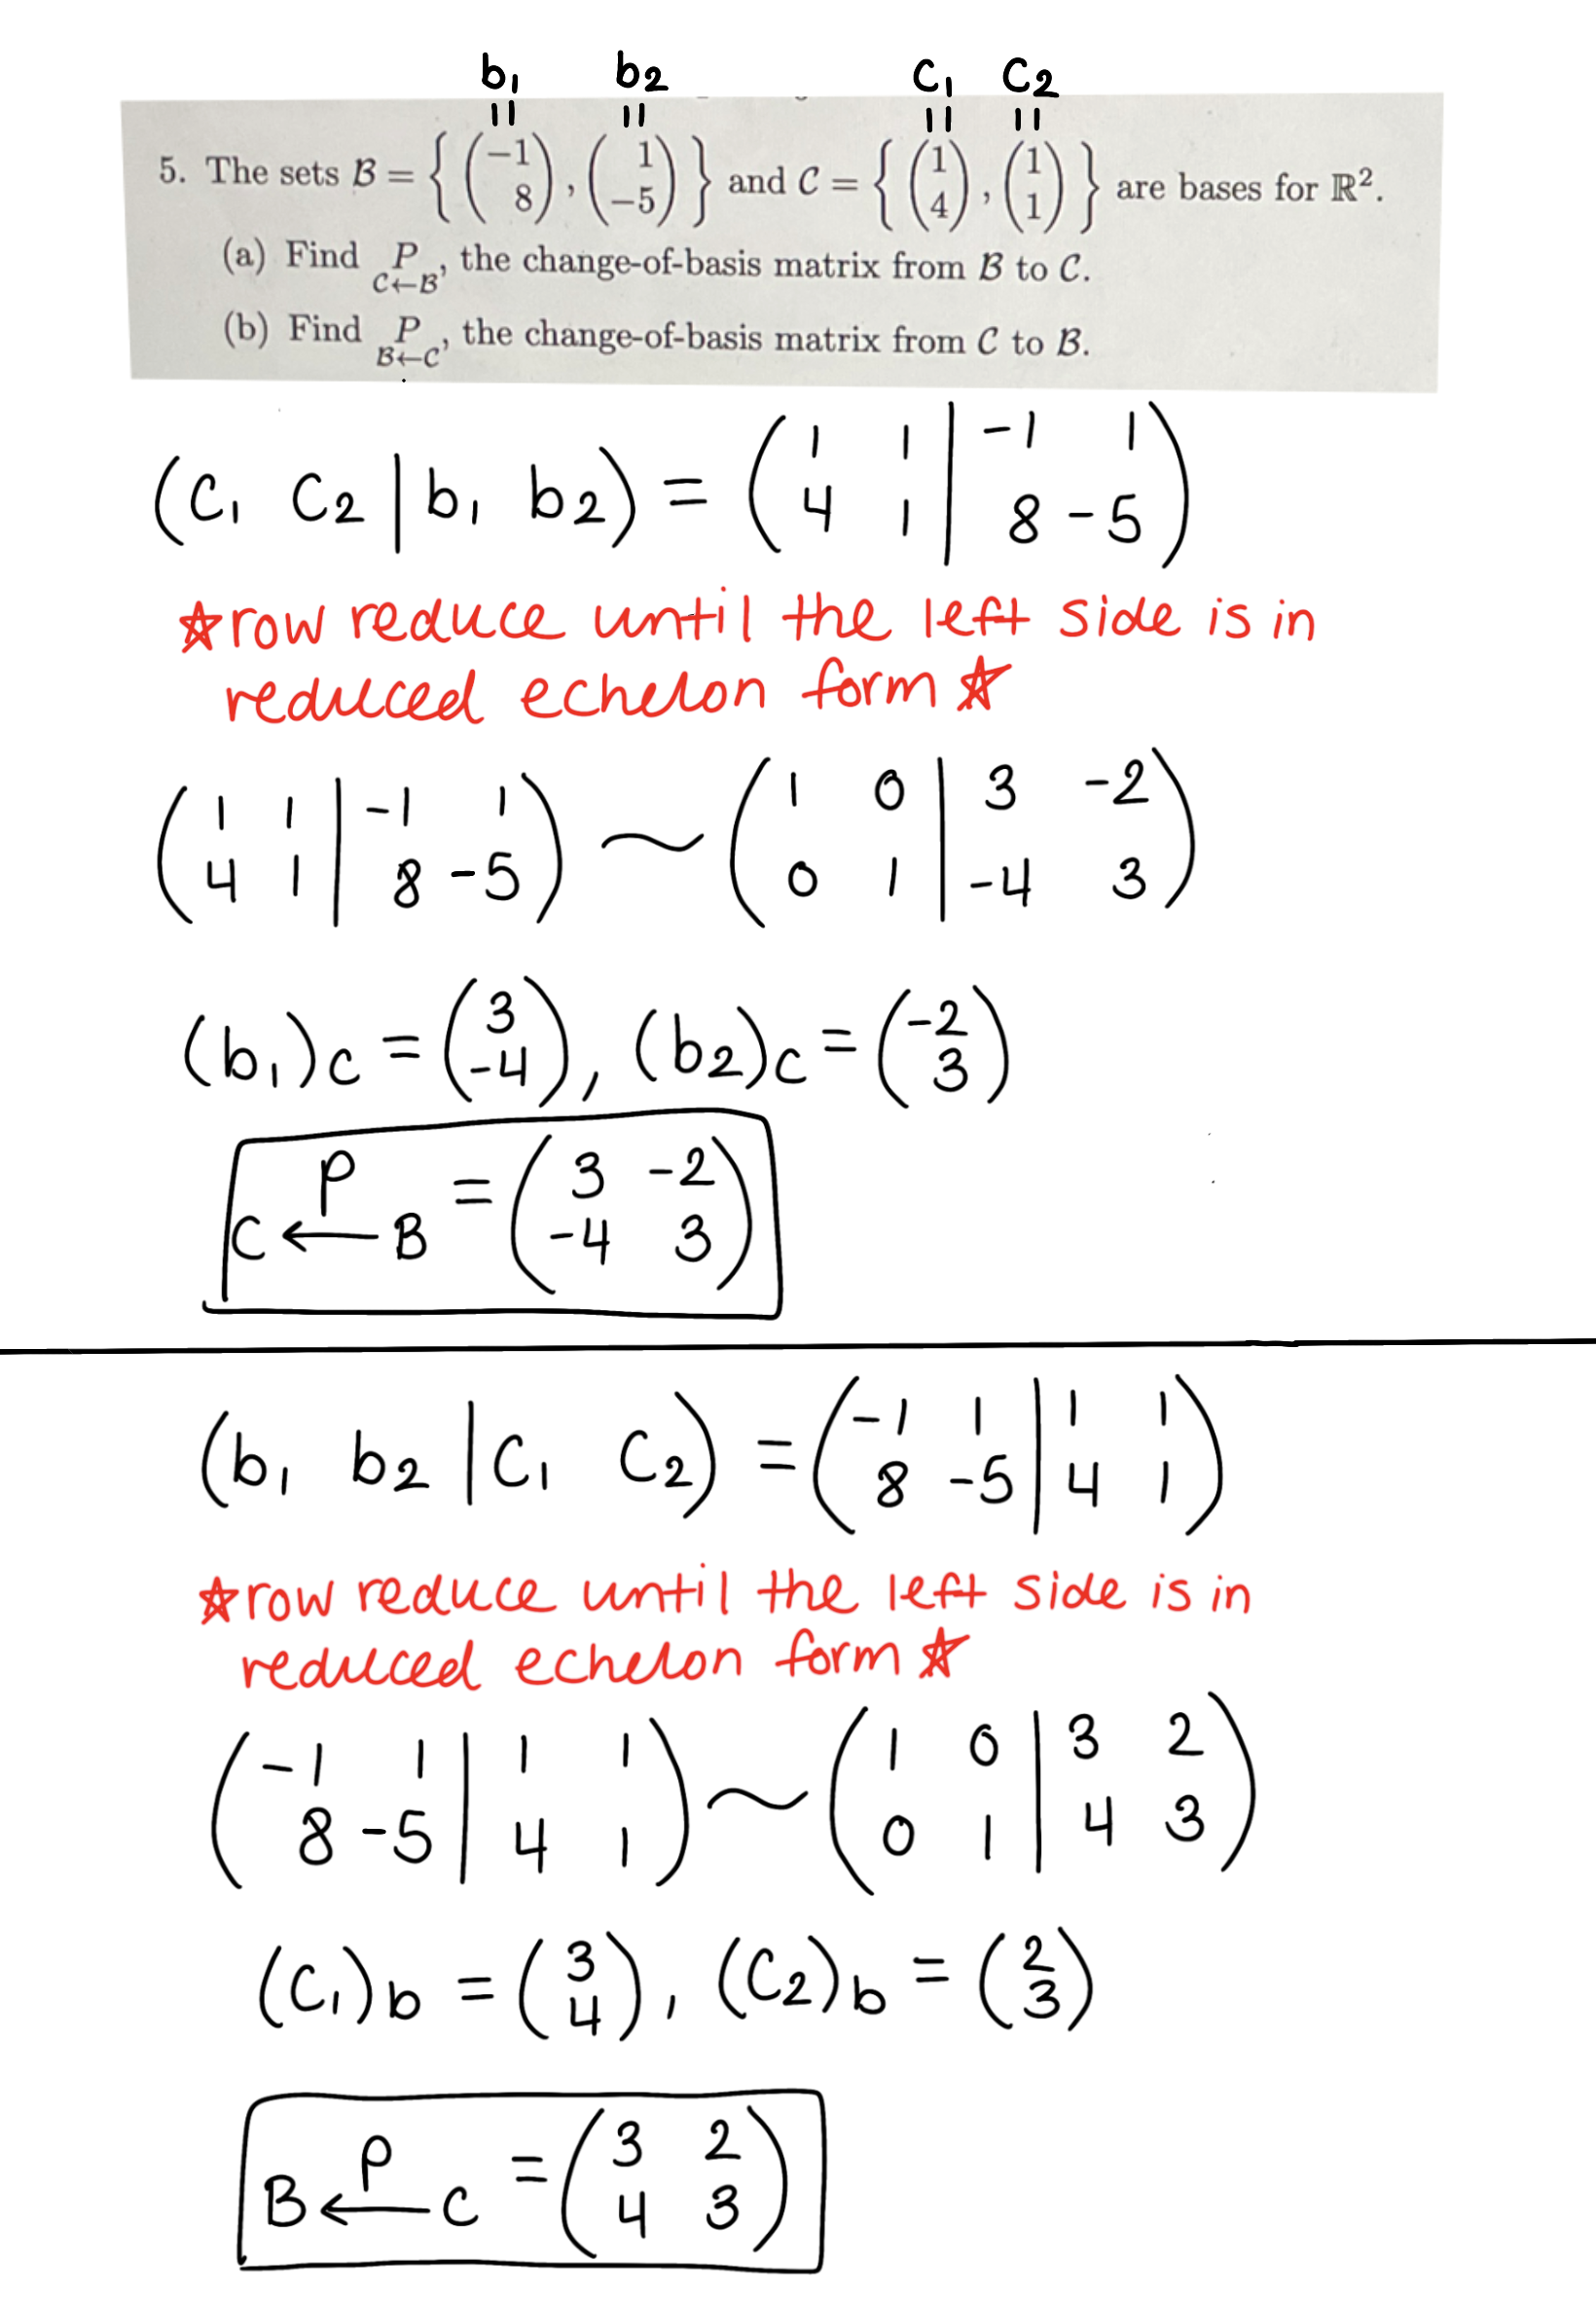 b₁ b₂ c₁ c₂
|| || || ||
5. The sets ℬ = { (−1 8), (1 −5) } and 𝒞 = { (1 4), (1 1) } are bases for ℝ².
(a) Find P 𝒞←ℬ, the change-of-basis matrix from ℬ to 𝒞.
(b) Find P ℬ←𝒞, the change-of-basis matrix from 𝒞 to ℬ.
(c₁ c₂ | b₁ b₂) = (1 1 | −1 1
4 1 | 8 −5)
☆row reduce until the left side is in
reduced echelon form☆
(1 1 | −1 1 ~ (1 0 | 3 −2
4 1 | 8 −5) 0 1 | −4 3)
(b₁)c = (3 −4), (b₂)c = (−2 3)
P C←B = (3 −2
−4 3)
(b₁ b₂ | c₁ c₂) = (−1 1 | 1 1
8 −5 | 4 1)
☆row reduce until the left side is in
reduced echelon form☆
(−1 1 | 1 1 ~ (1 0 | 3 2
8 −5 | 4 1) 0 1 | 4 3)
(c₁)b = (3 4), (c₂)b = (2 3)
P B←C = (3 2
4 3)